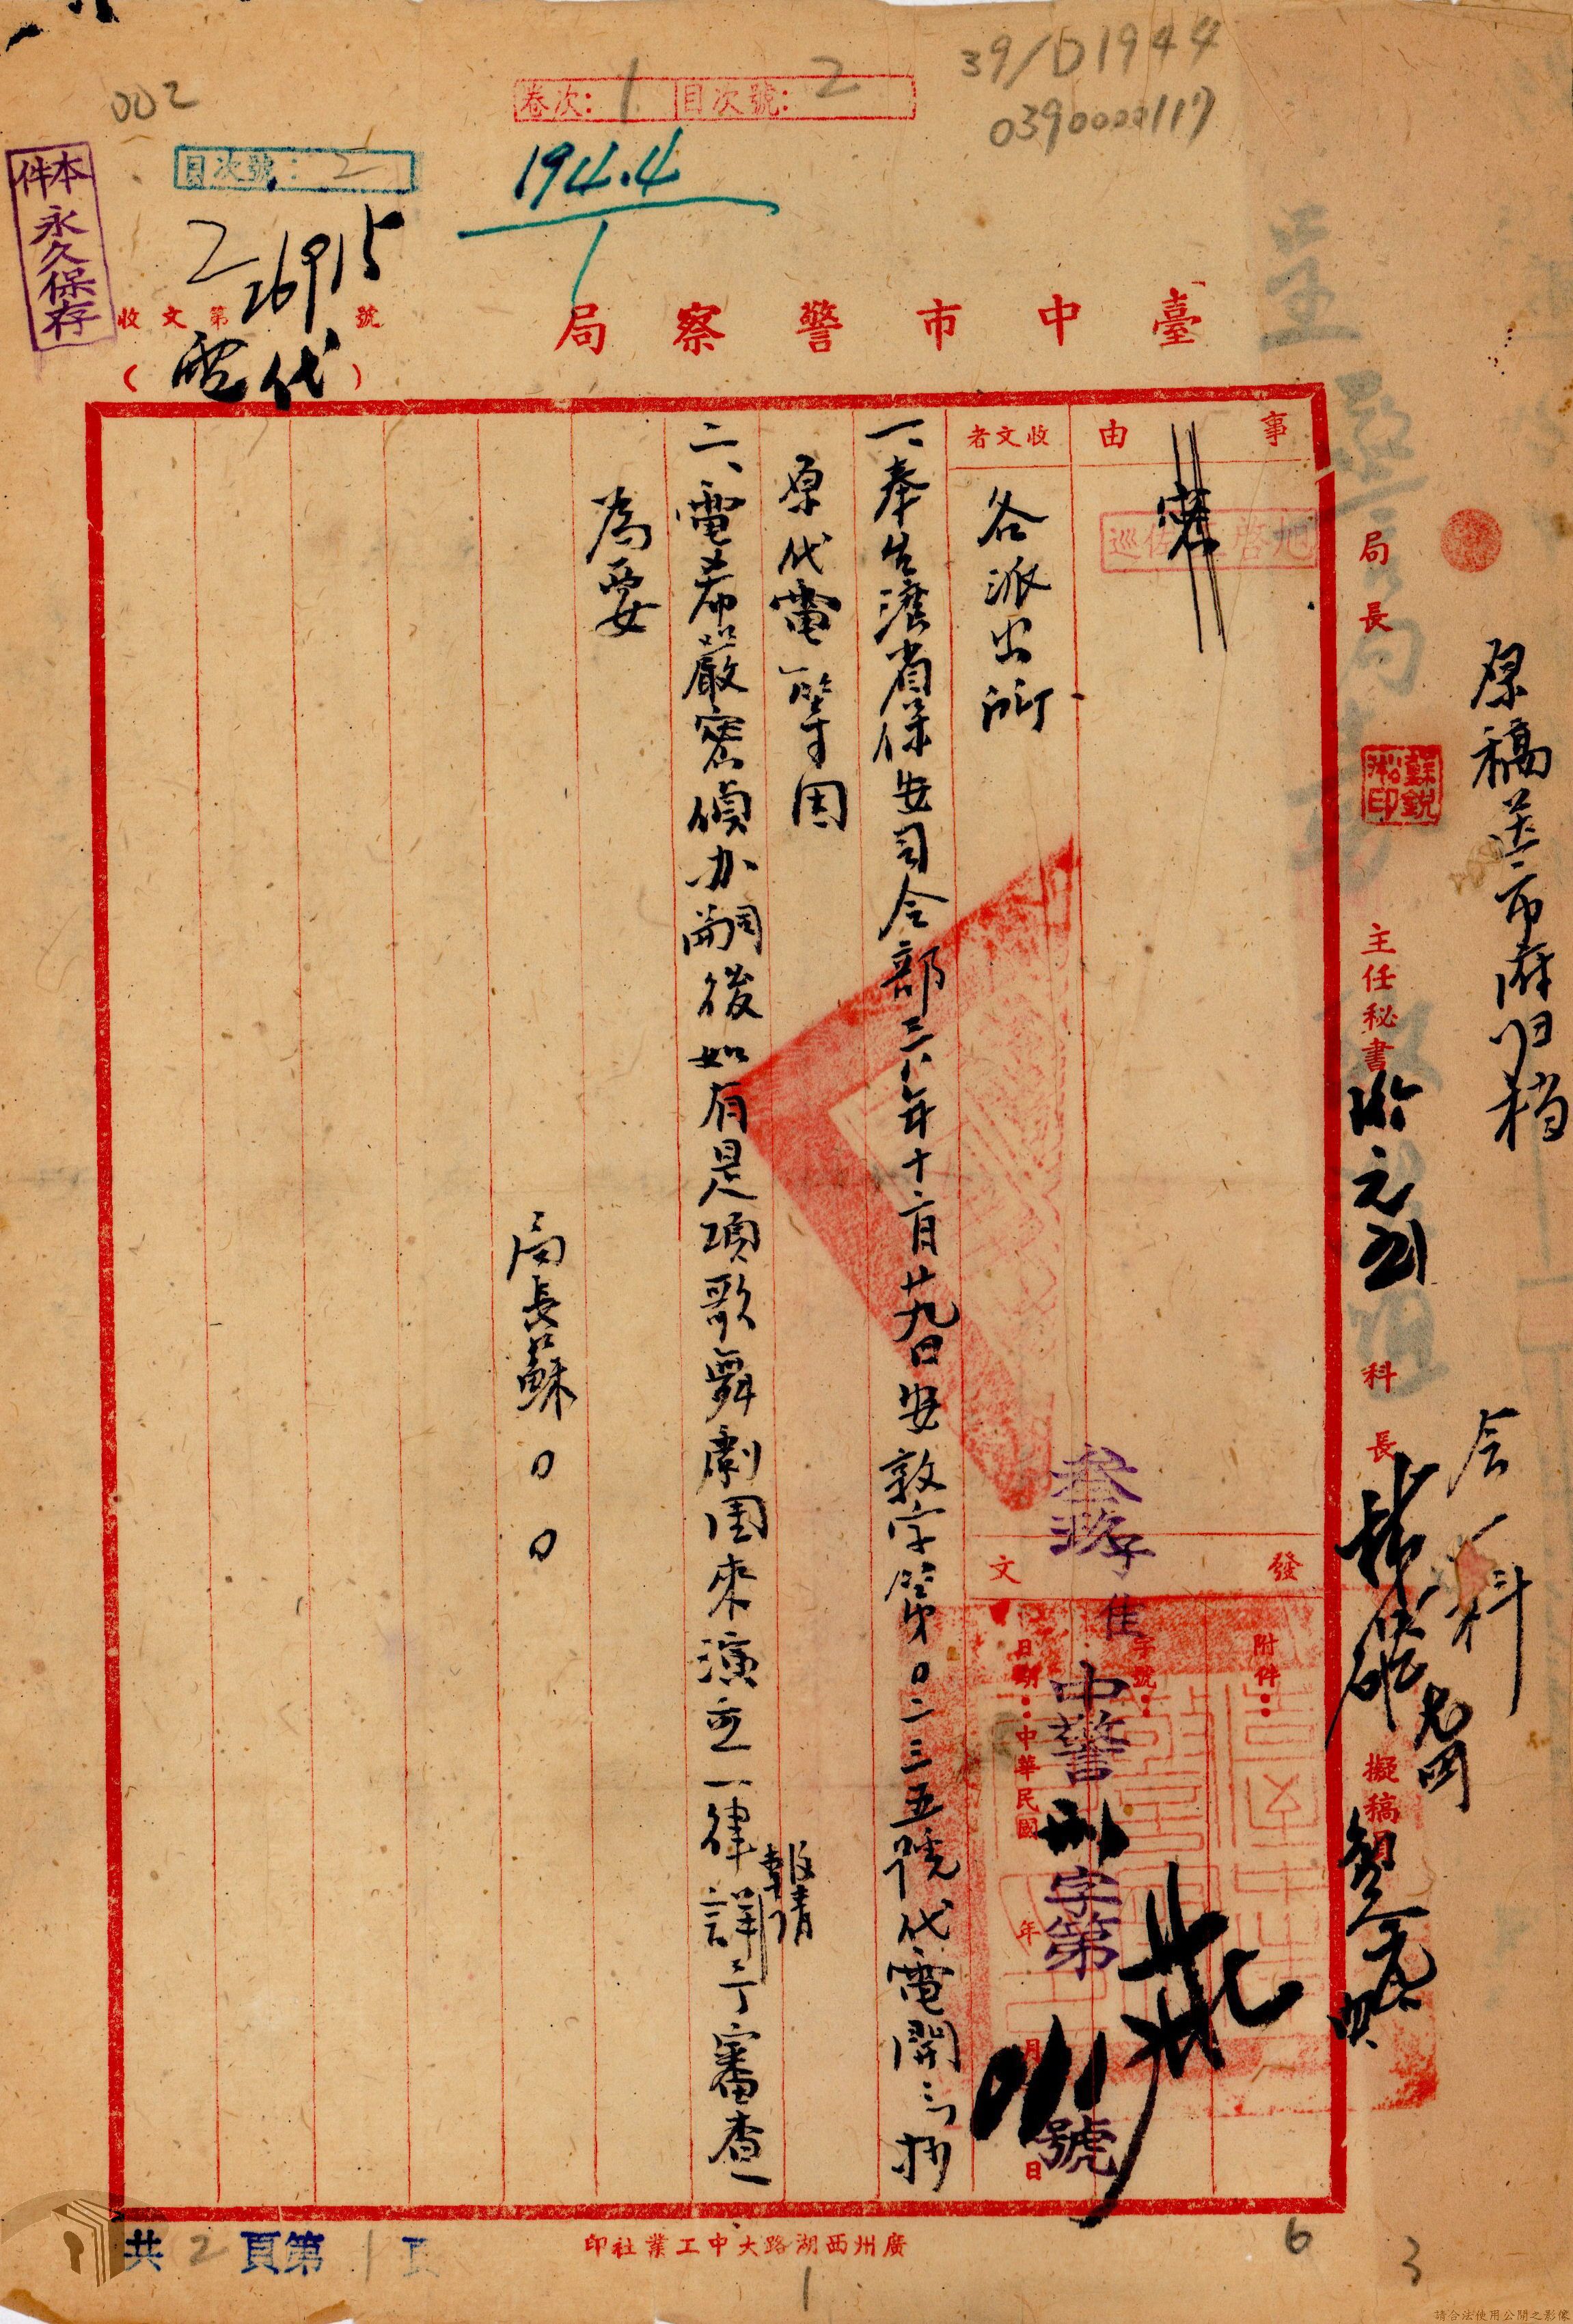 39/D1944
0390000117
卷次：1 目次號：2
002
目次號：2
194.4
1
本件永久保存
收文第 號
26915
（代電）
臺中市警察局
事由
收文者
各派出所
一、奉台灣省保安司令部三八年十二月廿九日安敦字第0二三五號代電開：「抄
原代電」等因
二、電希嚴密偵办嗣後如有是項歌舞劇团來演應一律詳報請予審查
為要
局長蘇00
發文
附件：
字號：
日期：中華民國 年 月 日
中警刑字第 號
局長
蘇銳淞印
主任秘書
科長
擬稿
原稿送市府归档
会一科
廣州西湖路大中工業社印
共2頁第1頁
1
6
3
請合法使用公開之影像